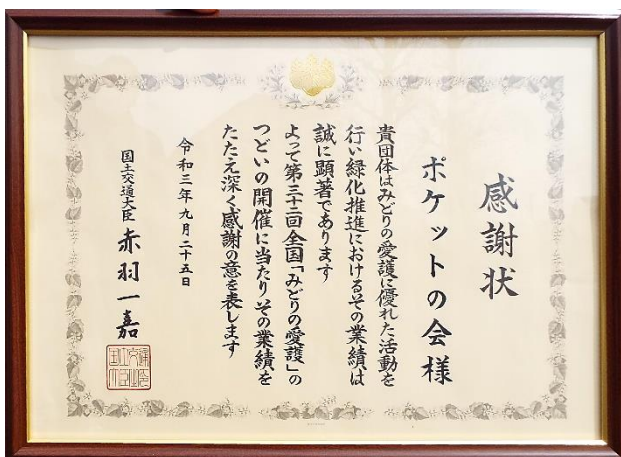 感謝状
ポケットの会様
貴団体はみどりの愛護に優れた活動を
行い緑化推進におけるその業績は
誠に顕著であります
よって第三十二回全国「みどりの愛護」の
つどいの開催に当たりその業績を
たたえ深く感謝の意を表します
令和三年九月二十五日
国土交通大臣 赤羽一嘉